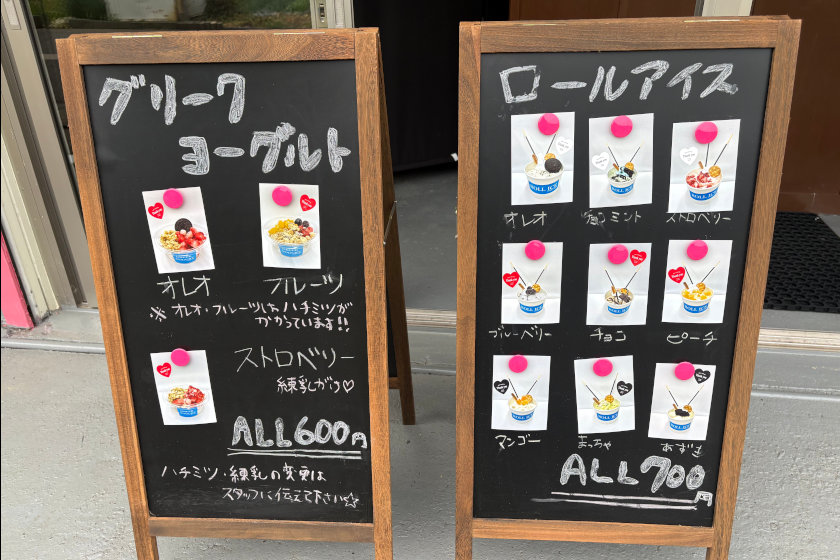 グリーク
ヨーグルト
オレオ
フルーツ
※オレオ・フルーツはハチミツが
かかっています!!
ストロベリー
練乳がけ♡
ALL600円
ハチミツ・練乳の変更は
スタッフに伝えて下さい☆
ロールアイス
オレオ
チョコミント
ストロベリー
ブルーベリー
チョコ
ピーチ
マンゴー
まっちゃ
あずき
ALL700円